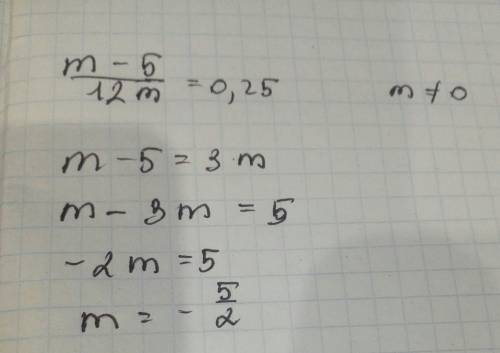 m - 5 / 12 m = 0,25 m ≠ 0
m - 5 = 3 m
m - 3 m = 5
- 2 m = 5
m = - 5/2